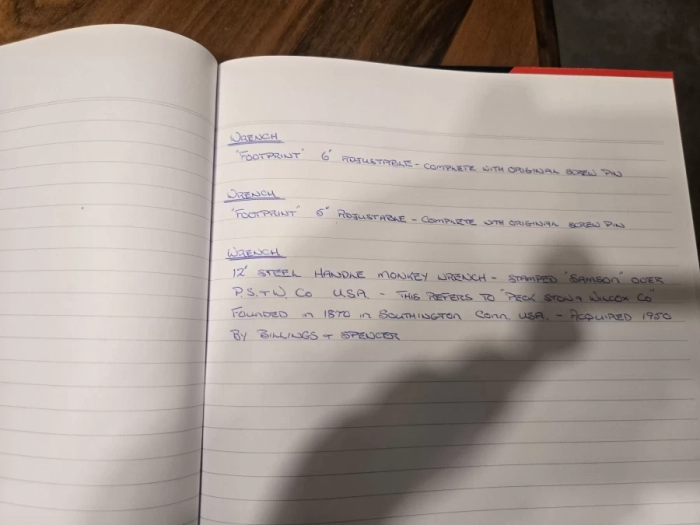 WRENCH
"FOOTPRINT" 6" ADJUSTABLE - COMPLETE WITH ORIGINAL SCREW PIN
WRENCH
"FOOTPRINT" 6" ADJUSTABLE - COMPLETE WITH ORIGINAL SCREW PIN
WRENCH
12" STEEL HANDLE MONKEY WRENCH - STAMPED "SAMSON" OVER
P.S. + W. Co USA - THIS REFERS TO "PECK STOW + WILCOX Co"
FOUNDED in 1870 in SOUTHINGTON Conn USA. - ACQUIRED 1950
BY BILLINGS + SPENCER